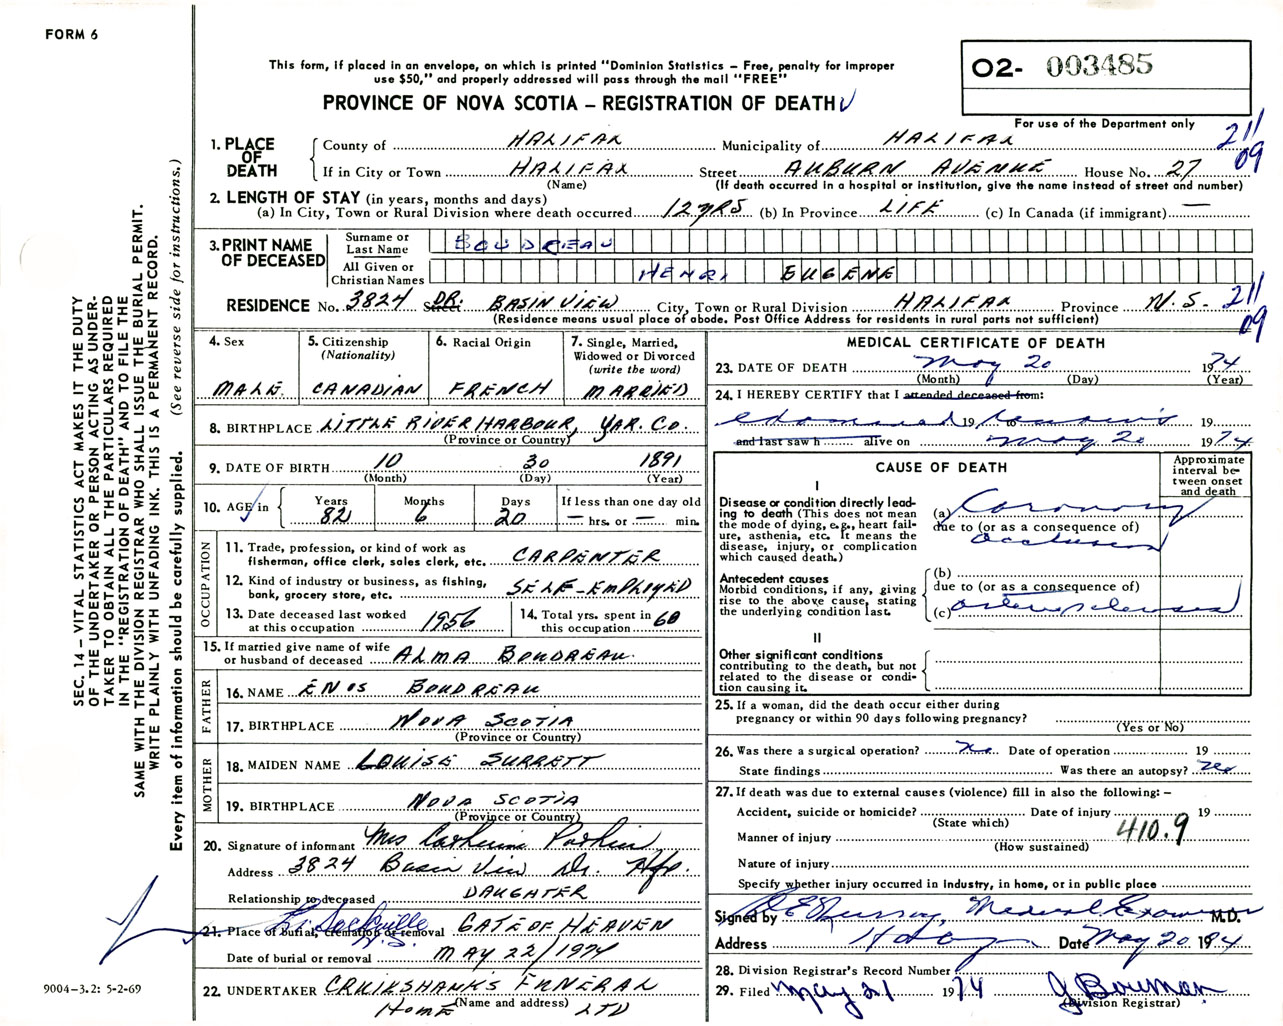 FORM 6
This form, if placed in an envelope, on which is printed "Dominion Statistics – Free, penalty for improper
use $50," and properly addressed will pass through the mail "FREE"
PROVINCE OF NOVA SCOTIA – REGISTRATION OF DEATH
O2- 003485
For use of the Department only
211
09
1. PLACE OF DEATH
County of HALIFAX Municipality of HALIFAX
If in City or Town HALIFAX Street AUBURN AVENUE House No. 27
(Name) (If death occurred in a hospital or institution, give the name instead of street and number)
2. LENGTH OF STAY (in years, months and days)
(a) In City, Town or Rural Division where death occurred 12 YRS (b) In Province LIFE (c) In Canada (if immigrant) —
3. PRINT NAME OF DECEASED
Surname or Last Name BOUDREAU
All Given or Christian Names HENRI EUGENE
RESIDENCE No. 3824 Street DR. BASIN VIEW City, Town or Rural Division HALIFAX Province N.S.
(Residence means usual place of abode. Post Office Address for residents in rural parts not sufficient)
211
09
4. Sex
MALE
5. Citizenship
(Nationality)
CANADIAN
6. Racial Origin
FRENCH
7. Single, Married,
Widowed or Divorced
(write the word)
MARRIED
8. BIRTHPLACE LITTLE RIVER HARBOUR, YAR. CO.
(Province or Country)
9. DATE OF BIRTH 10 30 1891
(Month) (Day) (Year)
10. AGE in
Years Months Days If less than one day old
82 6 20 — hrs. or — min.
OCCUPATION
11. Trade, profession, or kind of work as
fisherman, office clerk, sales clerk, etc. CARPENTER
12. Kind of industry or business, as fishing,
bank, grocery store, etc. SELF-EMPLOYED
13. Date deceased last worked
at this occupation 1956
14. Total yrs. spent in
this occupation 60
15. If married give name of wife
or husband of deceased ALMA BOUDREAU
FATHER
16. NAME ENOS BOUDREAU
17. BIRTHPLACE NOVA SCOTIA
(Province or Country)
MOTHER
18. MAIDEN NAME LOUISE SURRETT
19. BIRTHPLACE NOVA SCOTIA
(Province or Country)
20. Signature of informant Mrs Catherine
Address 3824 Basin View Dr. Hfx.
Relationship to deceased DAUGHTER
21. Place of burial, cremation or removal GATE OF HEAVEN
Lr. Sackville
N.S.
Date of burial or removal MAY 22/1974
22. UNDERTAKER CRUIKSHANKS FUNERAL
(Name and address)
HOME LTD
MEDICAL CERTIFICATE OF DEATH
23. DATE OF DEATH May 20 1974
(Month) (Day) (Year)
24. I HEREBY CERTIFY that I attended deceased from:
examined 19 to remains 19
and last saw h alive on May 20 1974
CAUSE OF DEATH
Approximate
interval be-
tween onset
and death
I
Disease or condition directly lead-
ing to death (This does not mean
the mode of dying, e.g., heart fail-
ure, asthenia, etc. It means the
disease, injury, or complication
which caused death.)
(a) Coronary
due to (or as a consequence of)
occlusion
Antecedent causes
Morbid conditions, if any, giving
rise to the above cause, stating
the underlying condition last.
(b)
due to (or as a consequence of)
(c) Arteriosclerosis
II
Other significant conditions
contributing to the death, but not
related to the disease or condi-
tion causing it.
25. If a woman, did the death occur either during
pregnancy or within 90 days following pregnancy?
(Yes or No)
26. Was there a surgical operation? no Date of operation 19
State findings Was there an autopsy? no
27. If death was due to external causes (violence) fill in also the following: –
Accident, suicide or homicide? Date of injury 19
(State which)
Manner of injury 410.9
(How sustained)
Nature of injury
Specify whether injury occurred in Industry, in home, or in public place
Signed by Medical Examiner M.D.
Address Date May 20 1974
28. Division Registrar's Record Number
29. Filed May 21 1974 J Bowman
(Division Registrar)
SEC. 14 – VITAL STATISTICS ACT MAKES IT THE DUTY
OF THE UNDERTAKER OR PERSON ACTING AS UNDER-
TAKER TO OBTAIN ALL THE PARTICULARS REQUIRED
IN THE "REGISTRATION OF DEATH" AND TO FILE THE
SAME WITH THE DIVISION REGISTRAR WHO SHALL ISSUE THE BURIAL PERMIT.
WRITE PLAINLY WITH UNFADING INK. THIS IS A PERMANENT RECORD.
Every item of information should be carefully supplied. (See reverse side for instructions.)
9004-3.2: 5-2-69